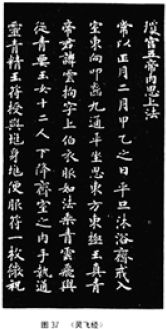 瓊宮五帝內思上法
常以正月二月甲乙之日平旦沐浴齋戒入
室東向叩齒九通平坐思東方東極玉真青
帝君諱雲拘字上伯衣服如法乘青雲飛輿
從青要玉女十二人下降齋室之內手執通
靈青精玉符授與兆身兆便服符一枚微祝
图 37 《灵飞经》